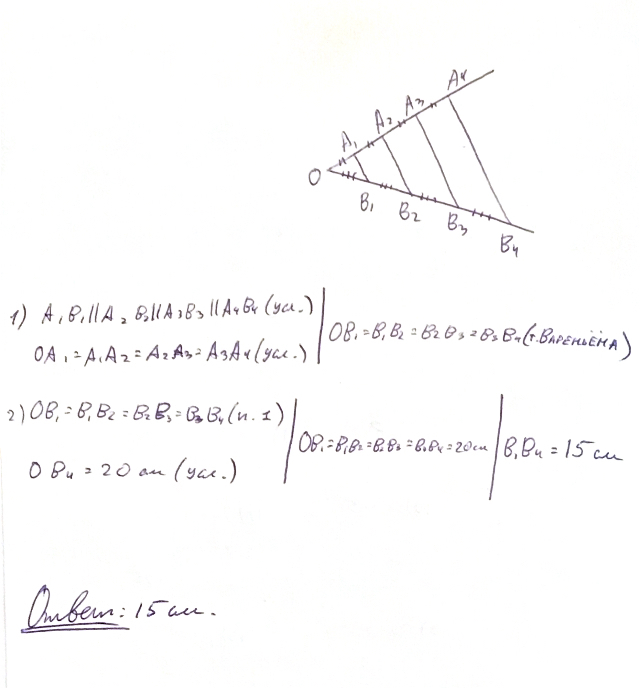 A₄
A₃
A₂
A₁
O
B₁
B₂
B₃
B₄
1) A₁B₁||A₂B₂||A₃B₃||A₄B₄ (усл.)
OA₁=A₁A₂=A₂A₃=A₃A₄ (усл.)
OB₁=B₁B₂=B₂B₃=B₃B₄ (т. ВАРЕНЬЁНА)
2) OB₁=B₁B₂=B₂B₃=B₃B₄ (п. 1)
OB₄=20 см (усл.)
OB₁=B₁B₂=B₂B₃=B₃B₄=20см
B₁B₄=15 см
Ответ: 15 см.